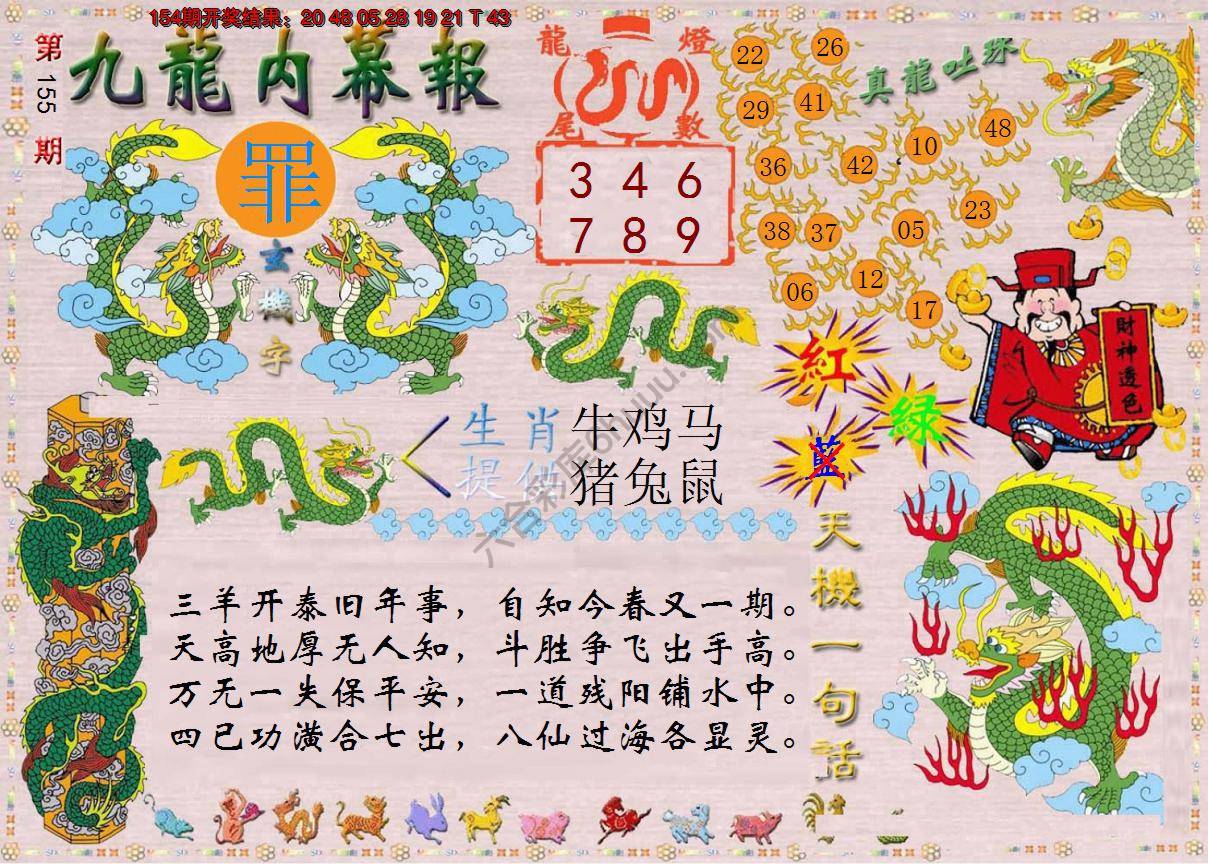 154期开奖结果：20 48 05 28 19 21 T 43
第155期
九龍内幕報
罪
玄機字
龍燈
尾數
3 4 6
7 8 9
真龍吐珠
22 26
29 41
36 42 10 48
38 37 05 23
06 12 17
財神透色
紅
綠
藍
生肖
牛鸡马
提供
猪兔鼠
天機一句話
三羊开泰旧年事，自知今春又一期。
天高地厚无人知，斗胜争飞出手高。
万无一失保平安，一道残阳铺水中。
四已功潢合七出，八仙过海各显灵。